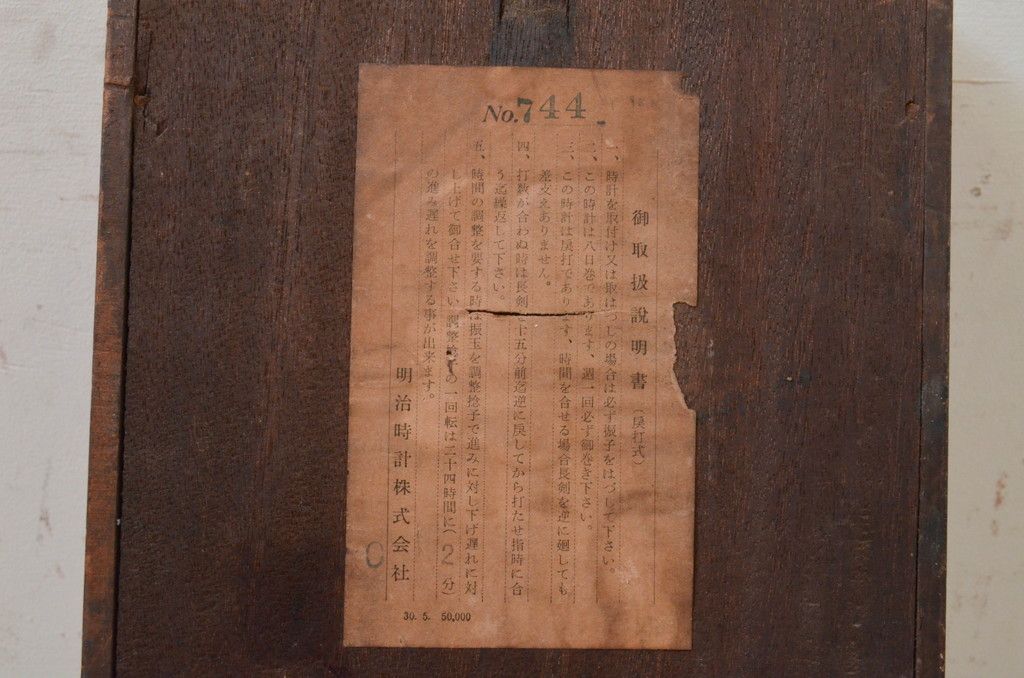 No.744
御取扱説明書（戻打式）
一、時計を取付け又は取はづしの場合は必ず振子をはづして下さい。
二、この時計は八日巻であります、週一回必ず御巻き下さい。
三、この時計は戻打であります、時間を合せる場合長剣を逆に廻しても
差支えありません。
四、打数が合わぬ時は長剣を十五分前迄逆に戻してから打たせ指時に合
う迄繰返して下さい。
五、時間の調整を要する時は振玉を調整捻子で進みに対し下げ遅れに対
し上げて御合せ下さい 調整捻子の一回転は二十四時間に（2分）
の進み遅れを調整する事が出来ます。
明治時計株式会社
0
30. 5. 50,000